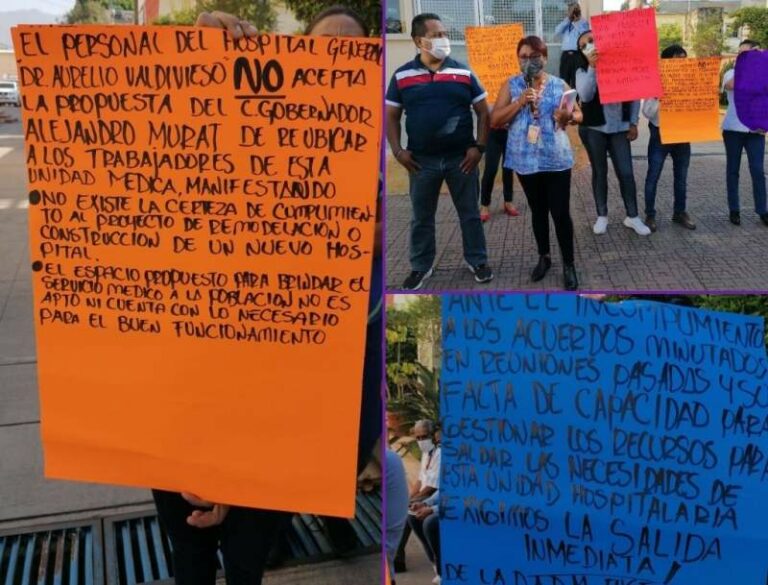 EL PERSONAL DEL HOSPITAL GENERAL
"DR. AURELIO VALDIVIESO" NO ACEPTA
LA PROPUESTA DEL C. GOBERNADOR
ALEJANDRO MURAT DE REUBICAR
A LOS TRABAJADORES DE ESTA
UNIDAD MEDICA, MANIFESTANDO
• NO EXISTE LA CERTEZA DE CUMPLIMIEN-
TO AL PROYECTO DE REMODELACIÓN O
CONSTRUCCION DE UN NUEVO HOS-
PITAL.
• EL ESPACIO PROPUESTO PARA BRINDAR EL
SERVICIO MEDICO A LA POBLACION NO ES
APTO NI CUENTA CON LO NECESARIO
PARA EL BUEN FUNCIONAMIENTO
ANTE EL INCUMPLIMIENTO
A LOS ACUERDOS MINUTADOS
EN REUNIONES PASADAS Y SU
FALTA DE CAPACIDAD PARA
GESTIONAR LOS RECURSOS PARA
SALDAR LAS NECESIDADES DE
ESTA UNIDAD HOSPITALARIA
EXIGIMOS LA SALIDA
INMEDIATA!
DE LA